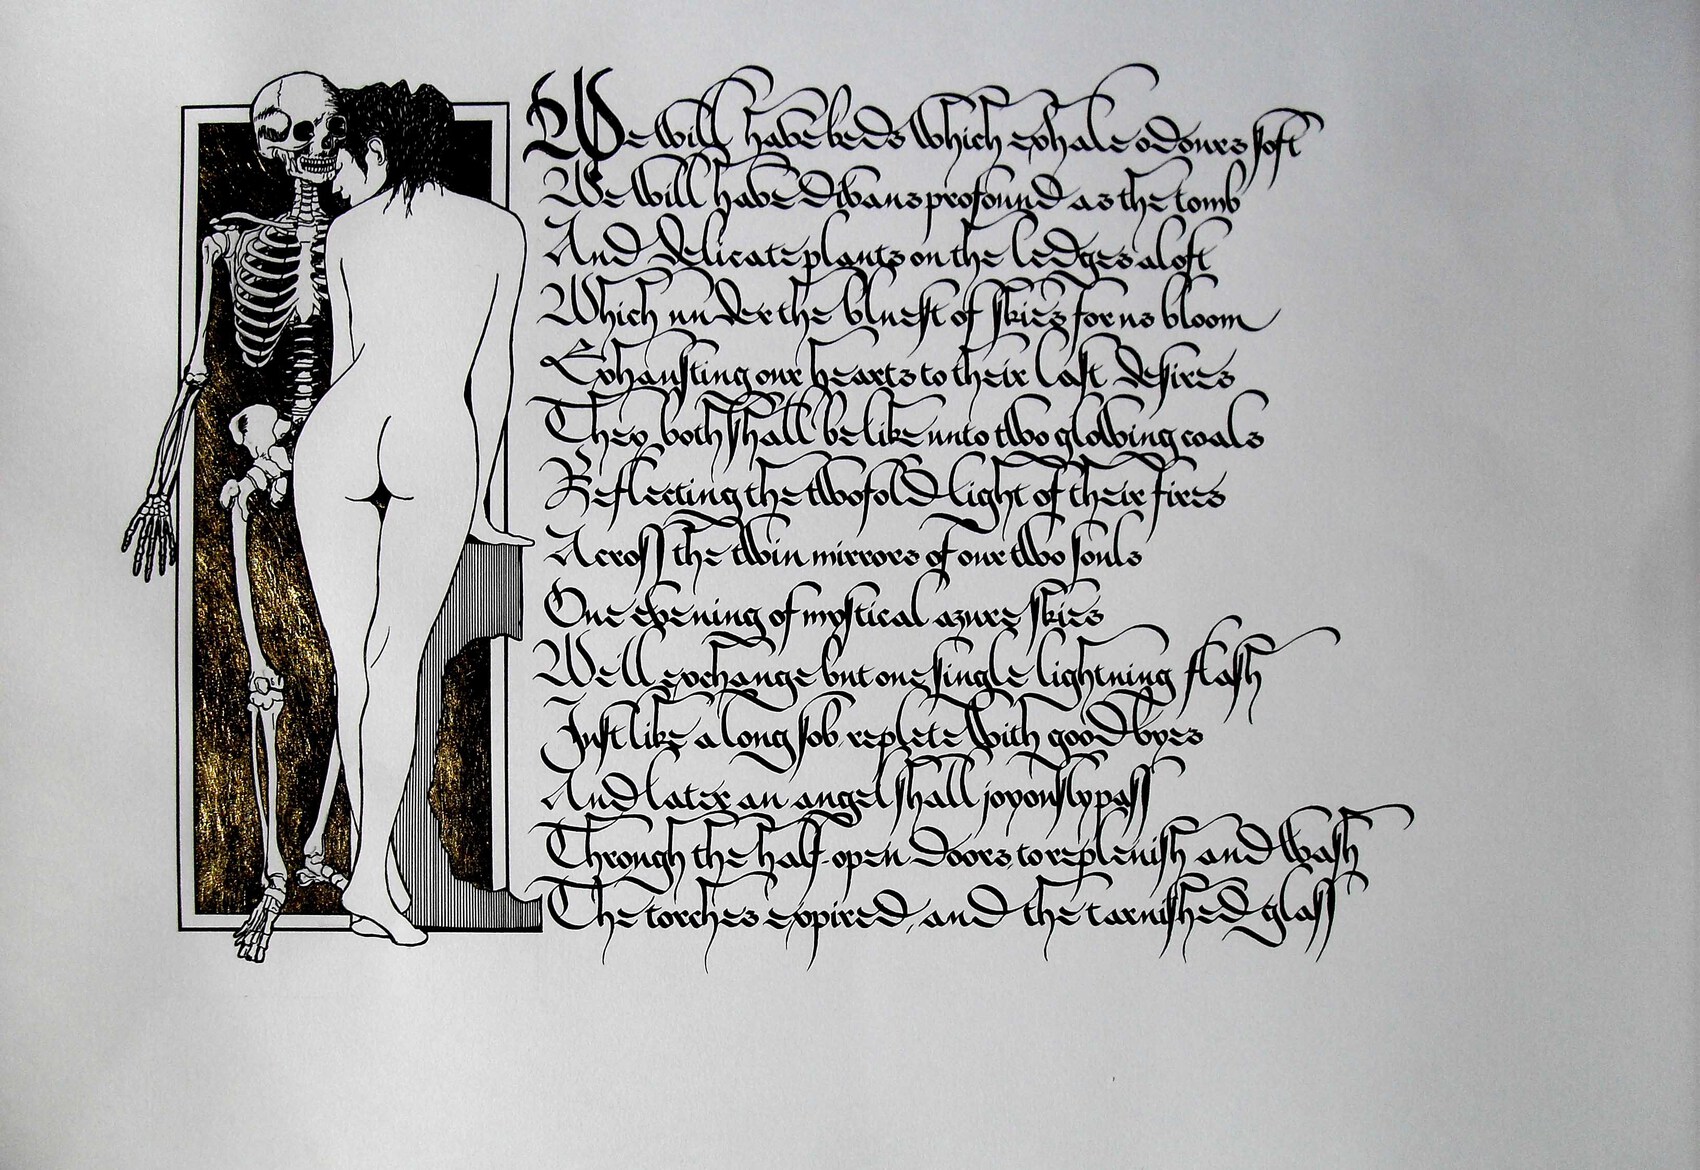 We will have beds which exhale odours soft
We will have divans profound as the tomb
And delicate plants on the ledges aloft
Which under the bluest of skies for us bloom
Exhausting our hearts to their last desires
They both shall be like unto two glowing coals
Reflecting the twofold light of their fires
Across the twin mirrors of our two souls
One evening of mystical azure skies
We'll exchange but one single lightning flash
Just like a long sob replete with good byes
And later an angel shall joyously pass
Through the half-open doors to replenish and wash
The torches expired, and the tarnished glass